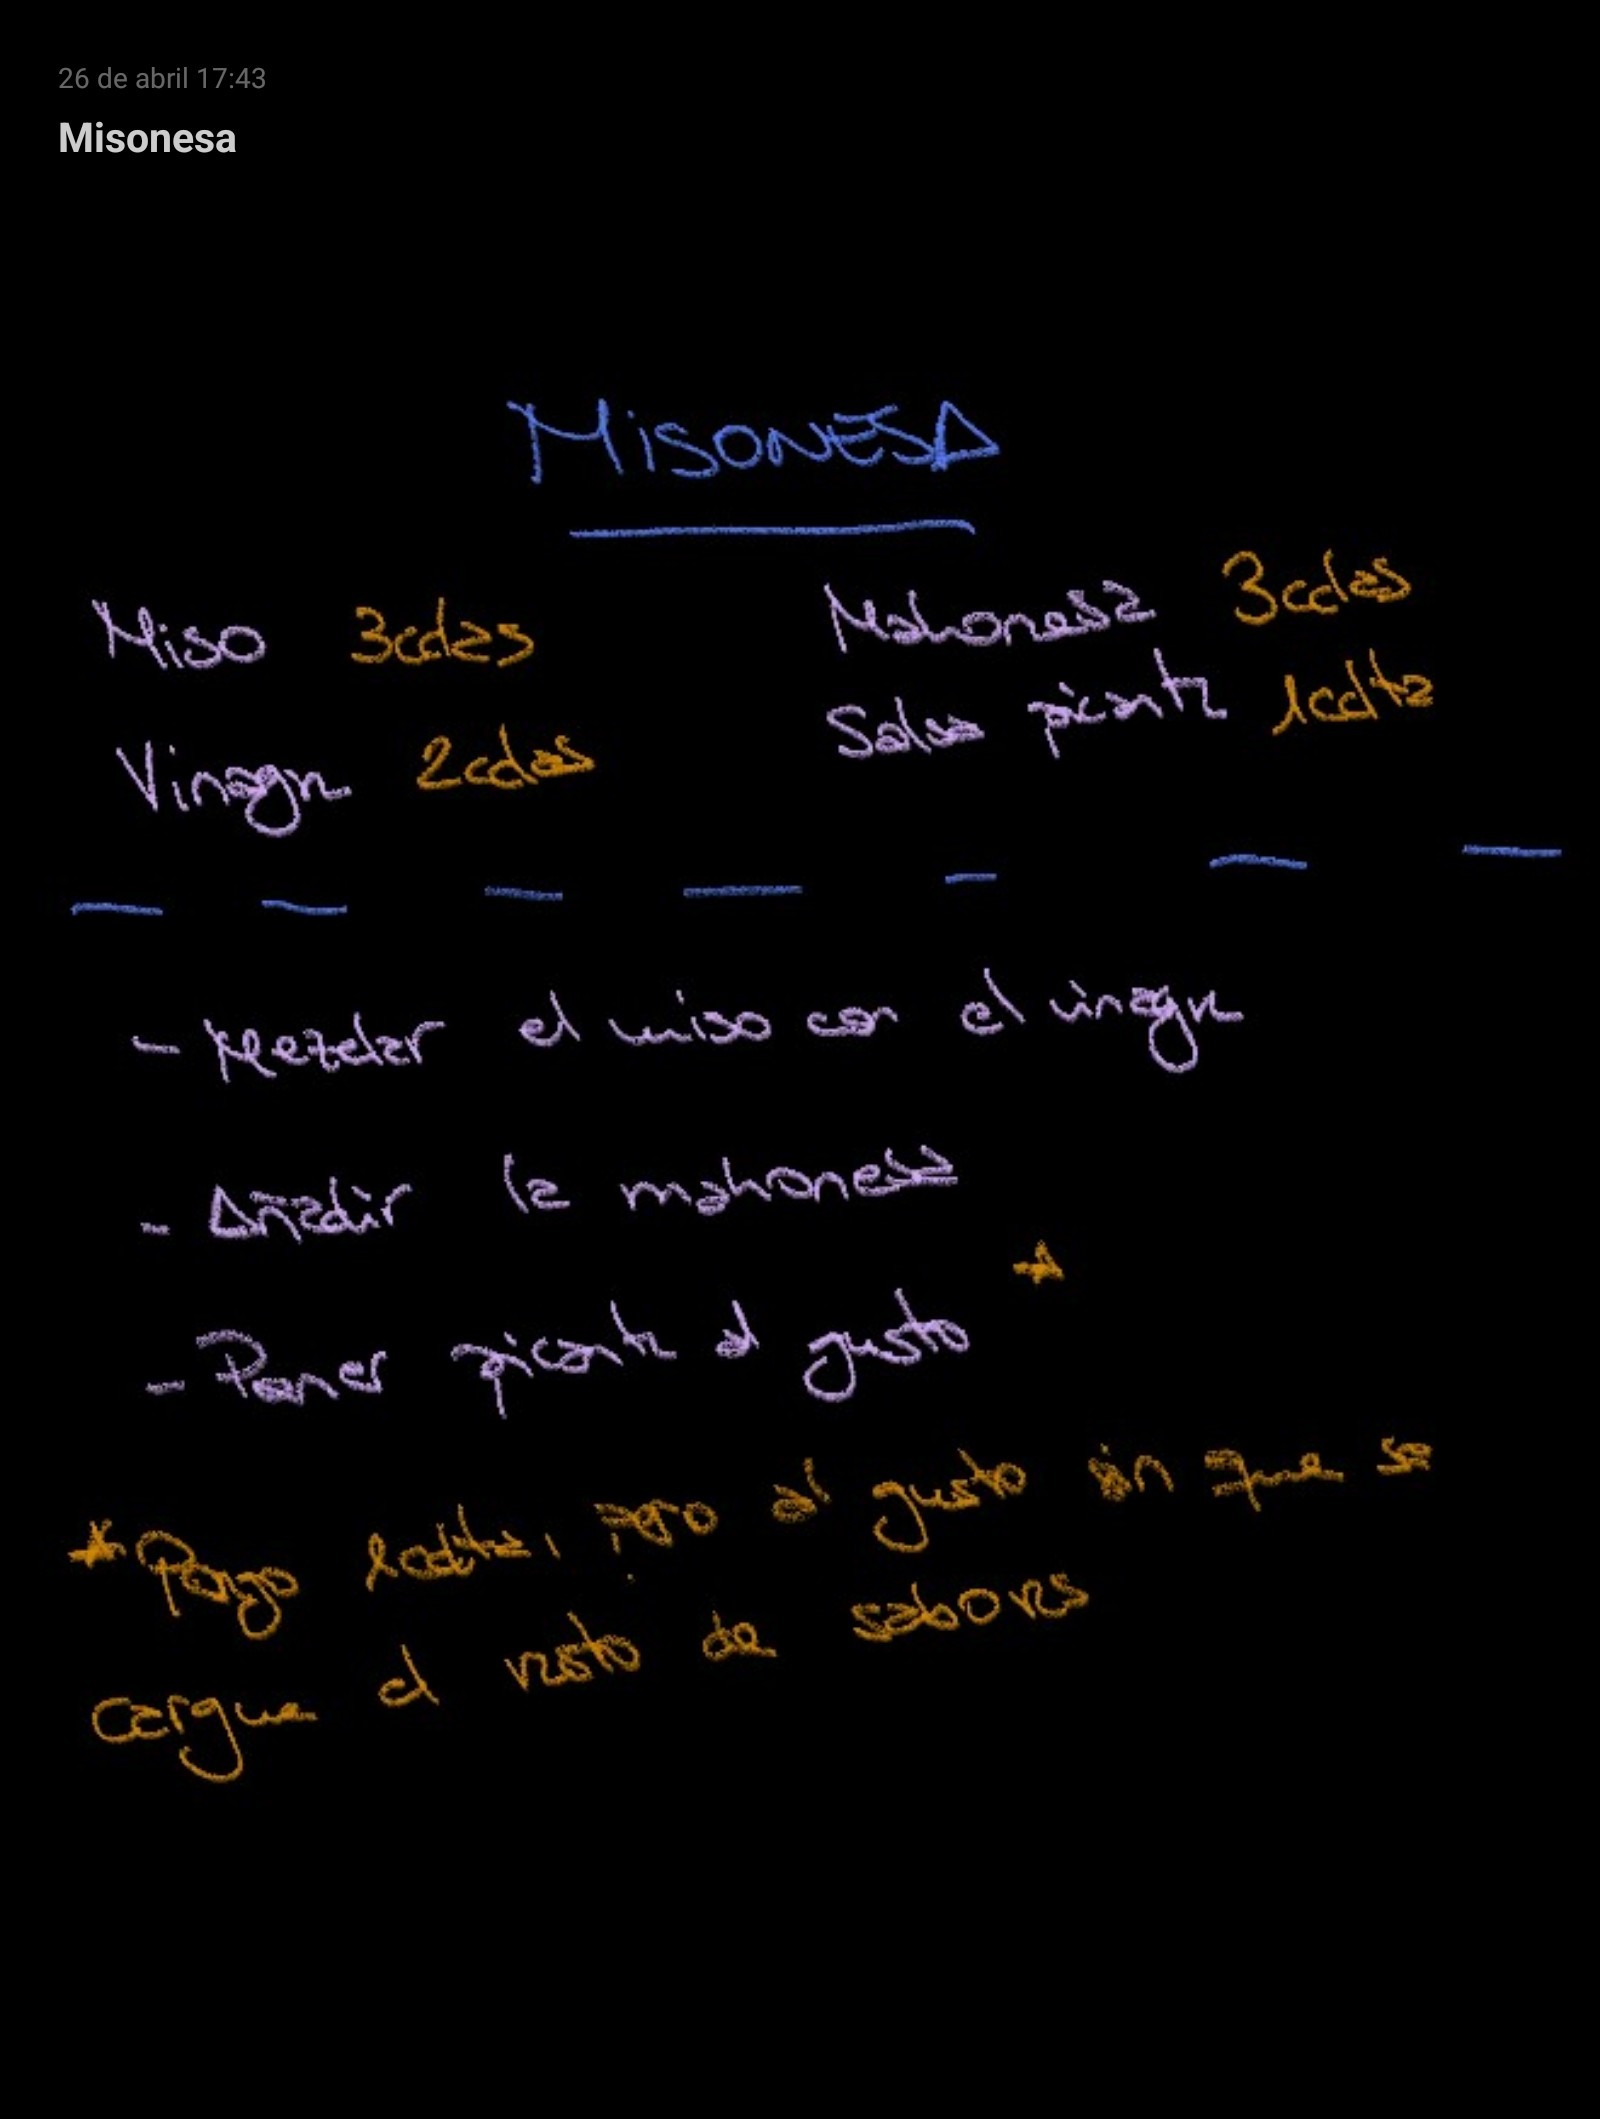 26 de abril 17:43
Misonesa
MISONESA
Miso 3cdas
Mahonesa 3cdas
Vinagre 2cdas
Salsa picante 1cdita
- Mezclar el miso con el vinagre
- Añadir la mahonesa
- Poner picante al gusto *
* Pongo 1cdita, pero al gusto sin que se
cargue el resto de sabores